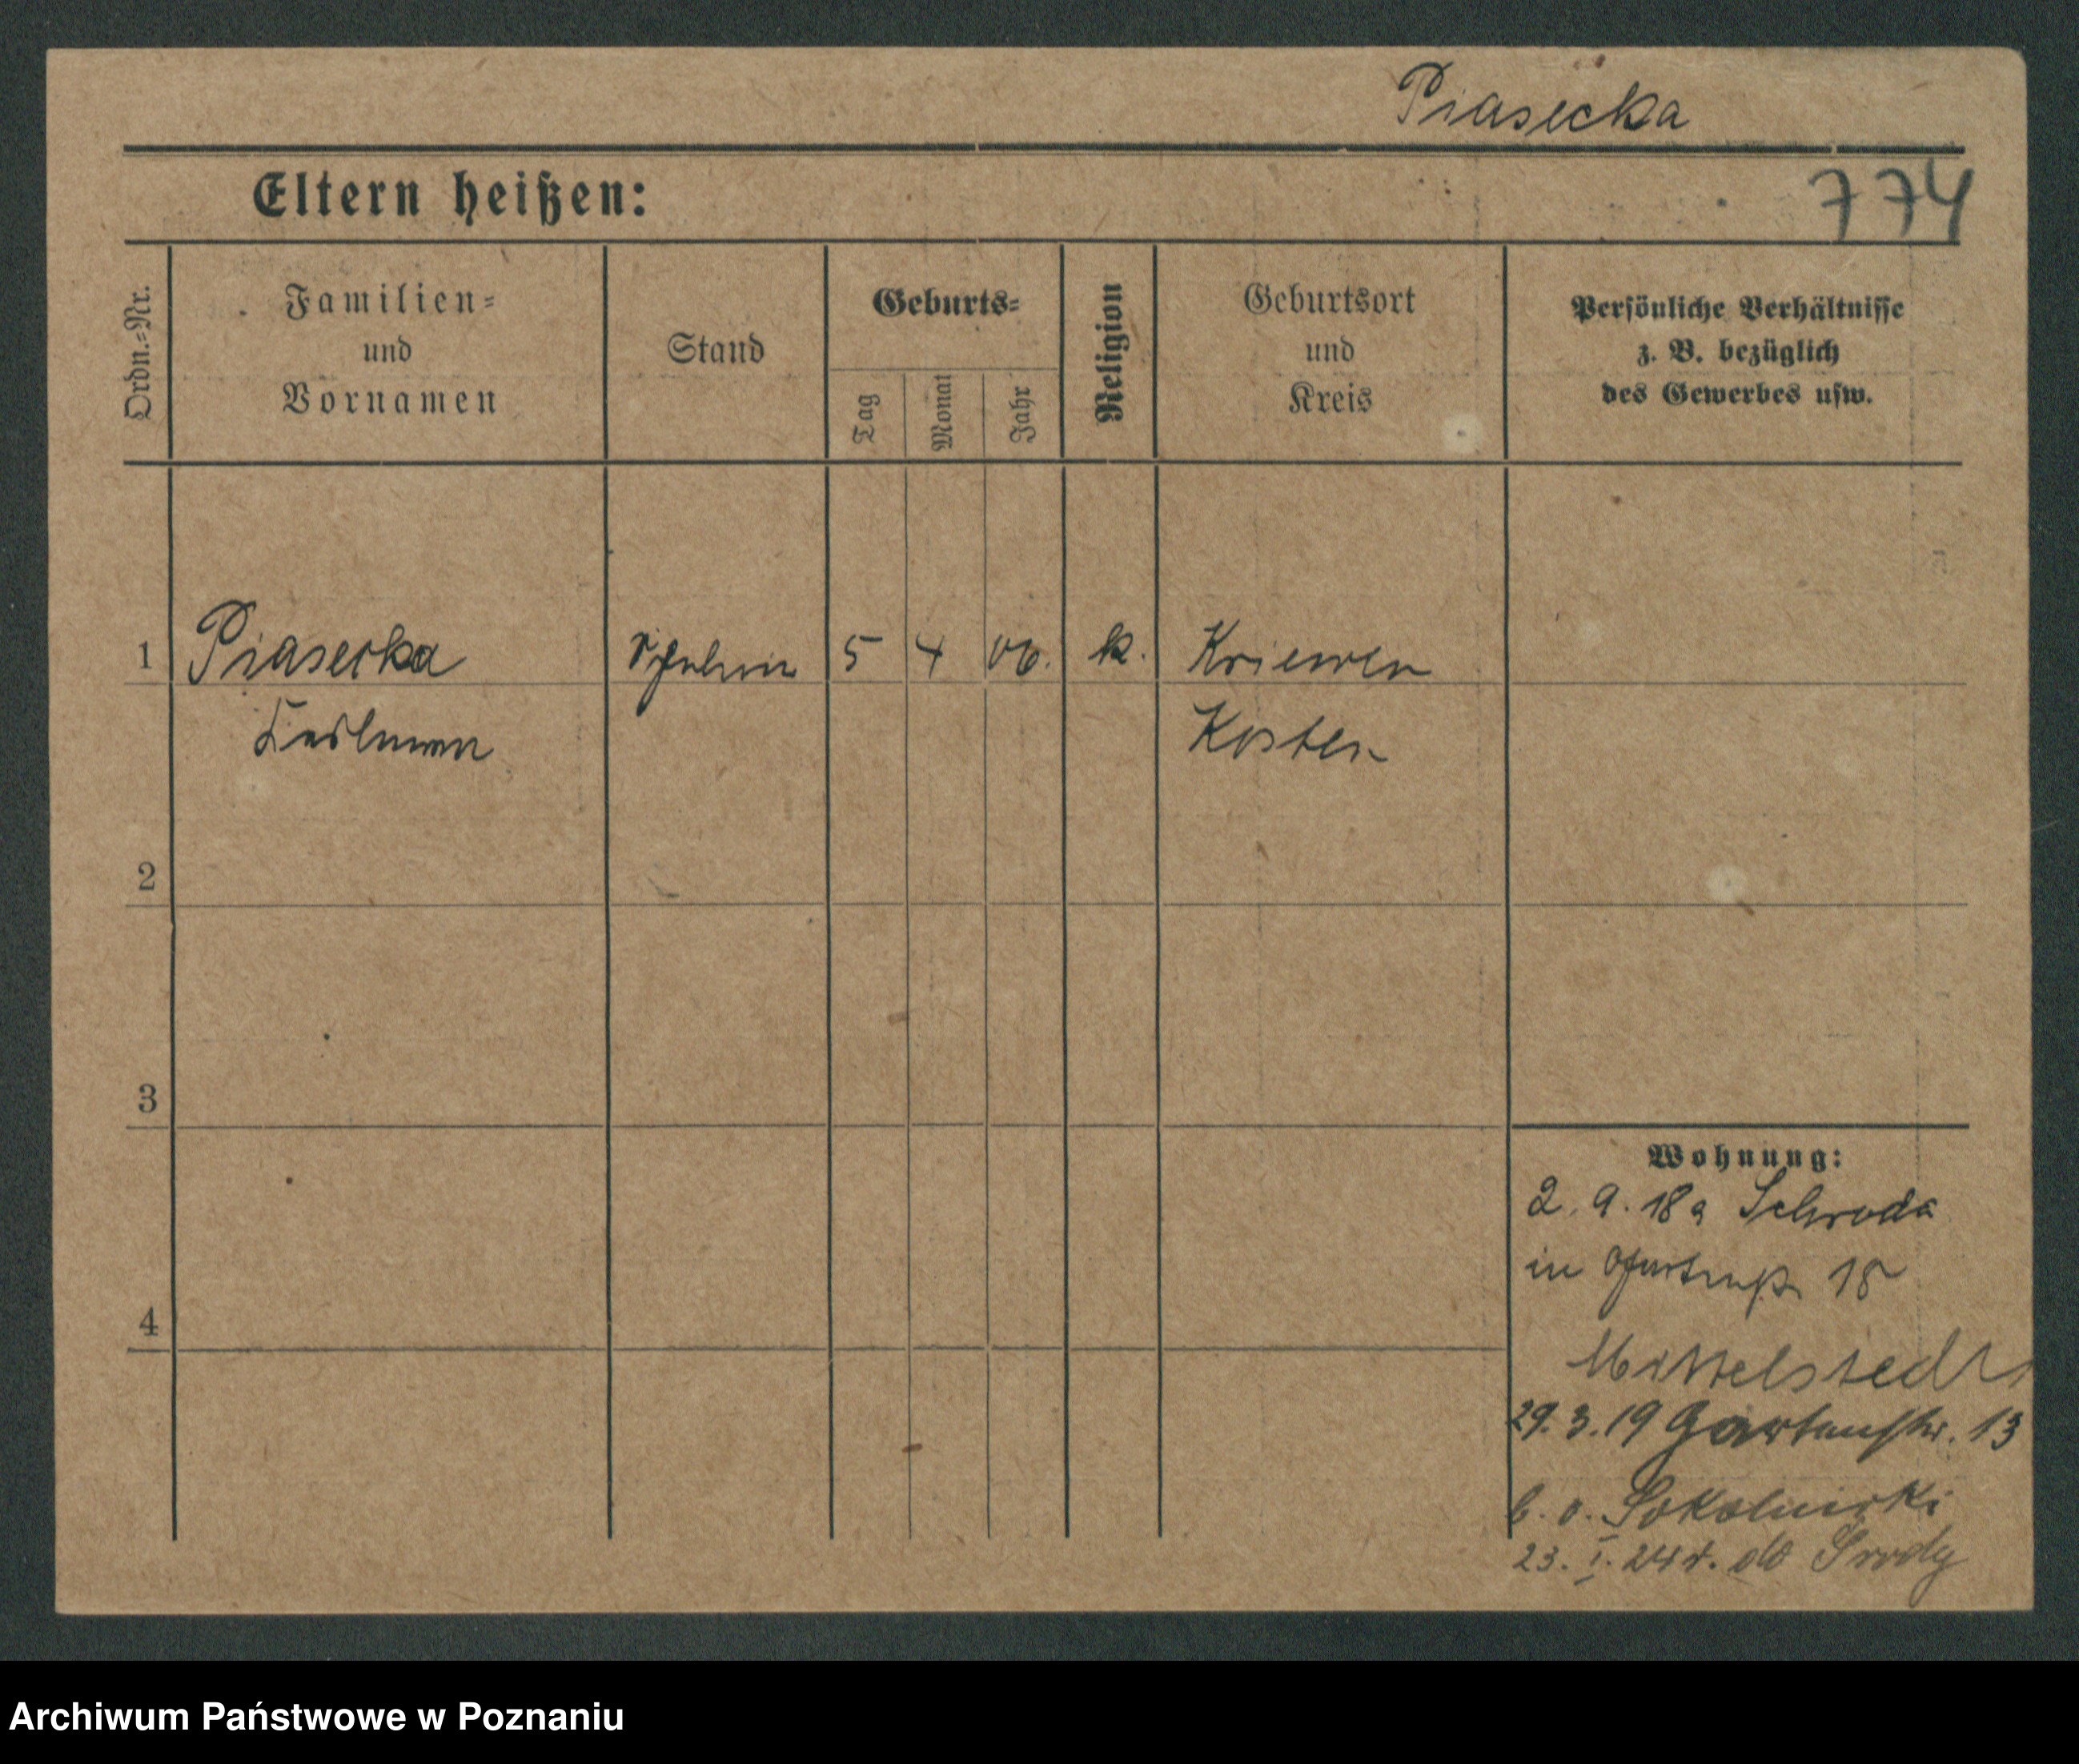 Piasecka
774
Eltern heißen:
Ordn.=Nr.
Familien=
und
Vornamen
Stand
Geburts=
Tag
Monat
Jahr
Religion
Geburtsort
und
Kreis
Persönliche Verhältnisse
z. B. bezüglich
des Gewerbes usw.
1 Piasecka 5 4 06. k. Kriewen
Kosten
2
3
4
Wohnung:
2. 9. 18 a Schroda
in 18
Mittelstedt
29. 3. 19 Gartenstr. 13
b. o. Sokolnicki
23. I. 24 r. do Środy
Archiwum Państwowe w Poznaniu